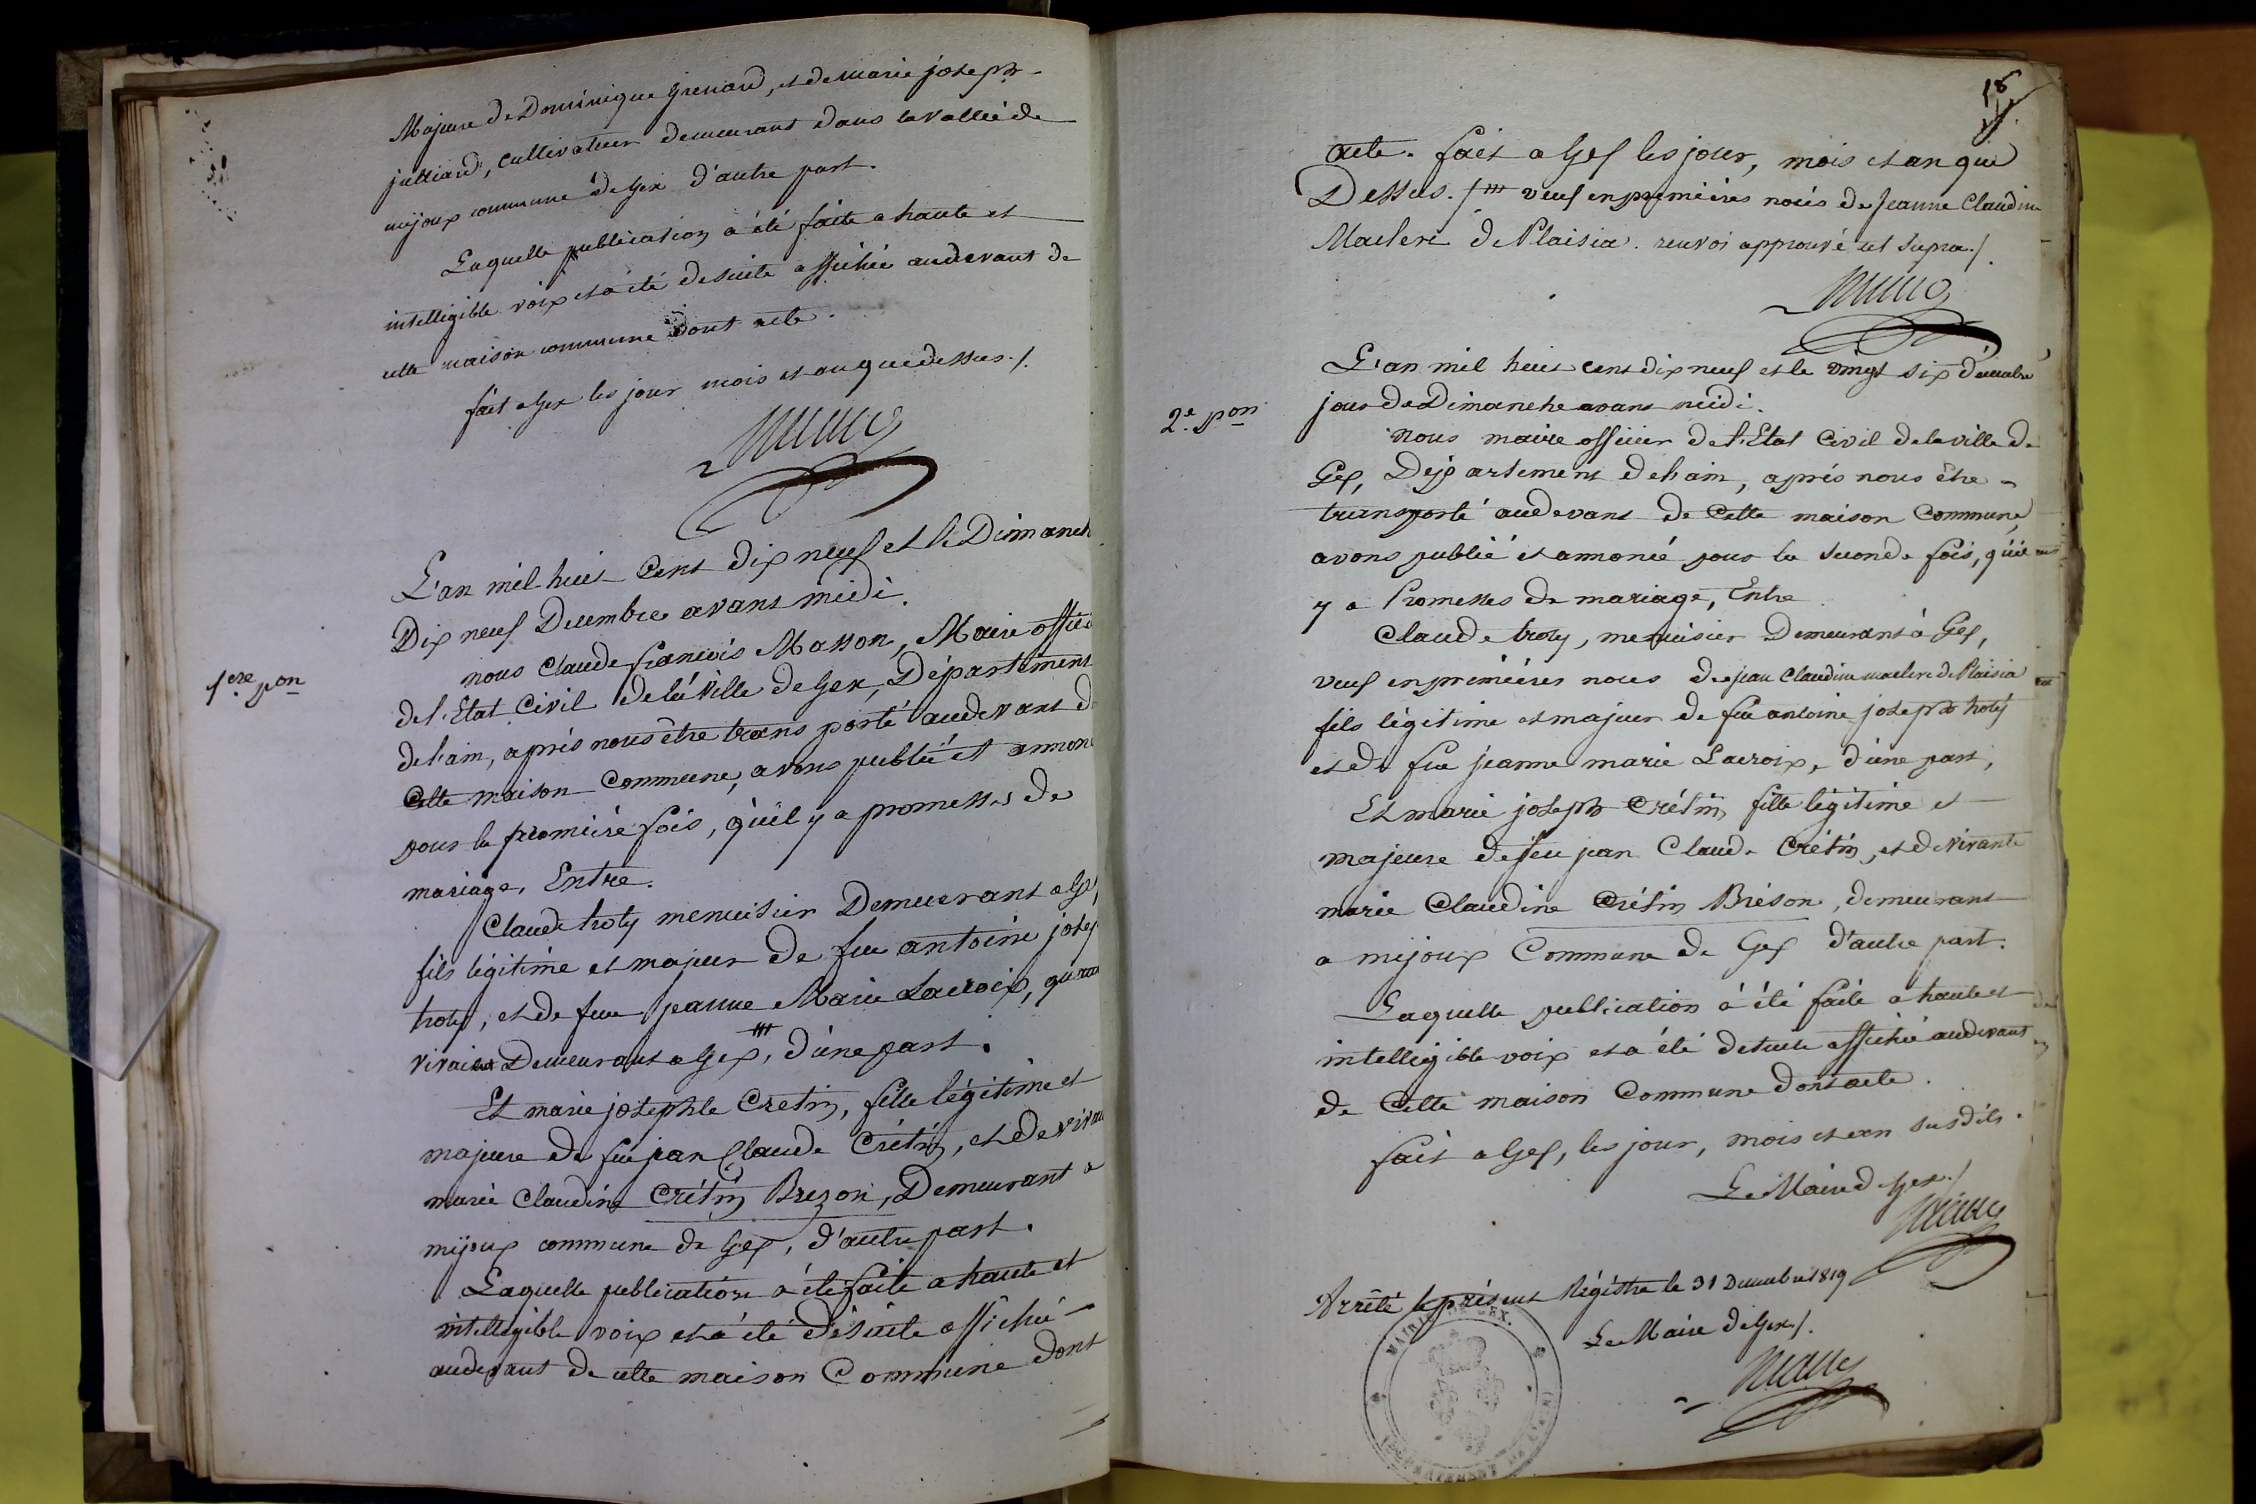 Majeure de Dominique grenard, et de marie joseph
julliard, cultivateur demeurant dans la vallée de
mijoux commune de Gex d'autre part.
Laquelle publication à été faite a haute et
intelligible voix et à été de suite affichée audevant de
cette maison commune dont acte.
fait a Gex les jour mois et an que dessus ./.
1ere pon
L'an mil huit Cent dix neuf et le Dimanch
Dix neuf Decembre avant midi.
nous Claude françois Masson, Maire offici
de l'Etat Civil de la Ville de Gex, Département
de l'ain, après nous être transporté audevant d
Cette maison Commune, avons publié et annon
pour la première fois, qu'il y a promesses de
mariage, Entre.
Claude troty menuisier Demeurant a Gex,
fils légitime et majeur de feu antoine josep
troty, et de feue jeanne Marie Lacroix, quand
vivaient Demeurant a Gex, d'une part.
Et marie josephte Cretin, fille légitime et
majeure de feu jean Claude Crétin, et de vivan
marie Claudine Crétin Brezon, Demeurant a
mijoux commune de Gex, d'autre part.
Laquelle publication à été faite a haute et
intelligible voix et à été de suite affiché
audevant de cette maison Commune dont
18
acte. fait a Gex les jour, mois et an que
Dessus. /## veuf en premières noces de Jeanne Claudine
Maclere de Plaisia. renvoi approuvé ut supra./.
2.e pon
L'an mil huit cent dix neuf et le vingt six décembre
jour de Dimanche avant midi.
nous maire officier de l'Etat Civil de la ville de
Gex, Département de l'ain, après nous être
transporté audevant de Cette maison Commune,
avons publié et annoncé pour la seconde fois, qu'il
y a Promesses de mariage, Entre
Claude troty, menuisier Demeurant à Gex,
veuf en premières noces de jean Claudine maclere de Plaisia
fils légitime et majeur de feu antoine joseph troty
et de feue jeanne marie Lacroix, d'une part,
Et marie joseph Crétin fille légitime et
majeure de feu jean Claude Crétin, et de vivante
marie Claudine Crétin Bréson, demeurant
a mijoux Commune de Gex d'autre part.
Laquelle publication à été faite a haute et
intelligible voix et à été de suite affichée audevant
de Cette maison Commune dont acte.
fait a Gex, les jour, mois et an susdits.
Le Maire de Gex./.
Arrêté le présent Régistre le 31 Decembre 1819
Le Maire de Gex./.
MAIRIE DE GEX.
DÉPARTEMENT DE L'AIN